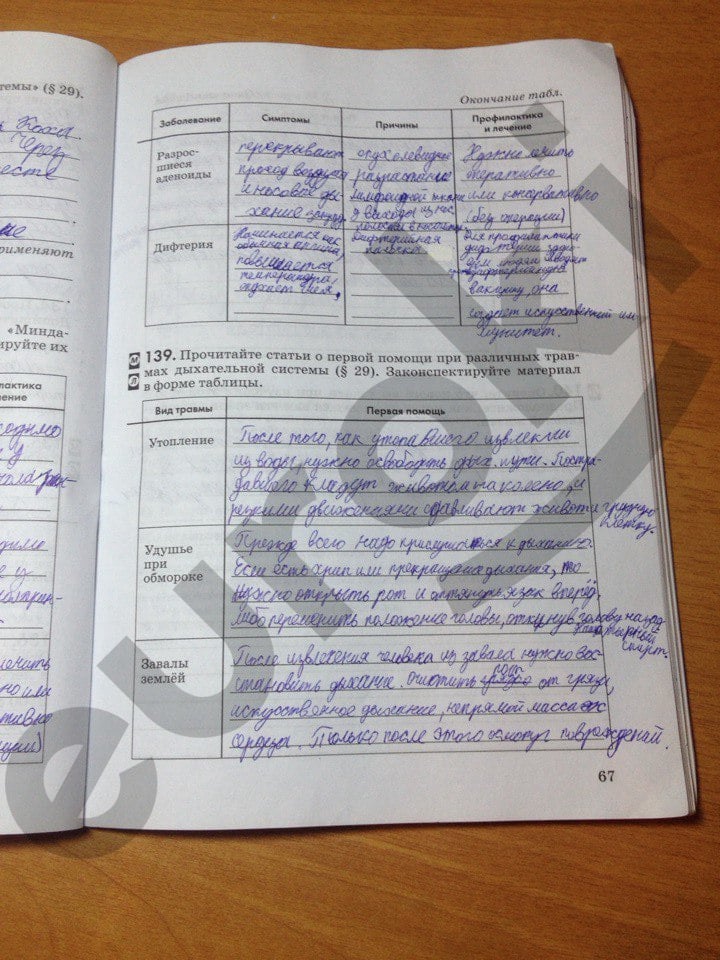 темы» (§ 29).
Коха.
Через
именяют
«Минда-
ируйте их
лактика
чение
Окончание табл.
Заболевание
Симптомы
Причины
Профилактика
и лечение
Разрос-
шиеся
аденоиды
перекрывают
проход воздуха
и носовое ды-
хание
опухолевидное
разрастание
лимфоидной ткани
у выхода из нос.
полости в носоглотку
Нужно лечить
оперативно
или консервативно
(без операции)
Дифтерия
Начинается как
обычная ангина,
повышается
температура,
опухает шея,
дифтерийная
палочка
Для профилактики
дифтерии
людям вводят
вакцину, она
создает искусственный им-
мунитет.
139. Прочитайте статьи о первой помощи при различных трав-
мах дыхательной системы (§ 29). Законспектируйте материал
в форме таблицы.
Вид травмы
Первая помощь
Утопление
После того, как утопавшего извлекли
из воды, нужно освободить дых. пути. Постра-
давшего кладут животом на колено, и
резкими движениями сдавливают живот и грудную
клетку.
Удушье
при
обмороке
Прежде всего надо прислушаться к дыханию.
Если есть хрип или прекращение дыхания, то
нужно открыть рот и оттянуть язык вперёд.
Либо переменить положение головы, откинув голову назад
спирт.
Завалы
землёй
После извлечения человека из завала нужно вос-
становить дыхание. Очистить рот от грязи,
искусственное дыхание, непрямой массаж
сердца. Только после этого осмотр повреждений.
67